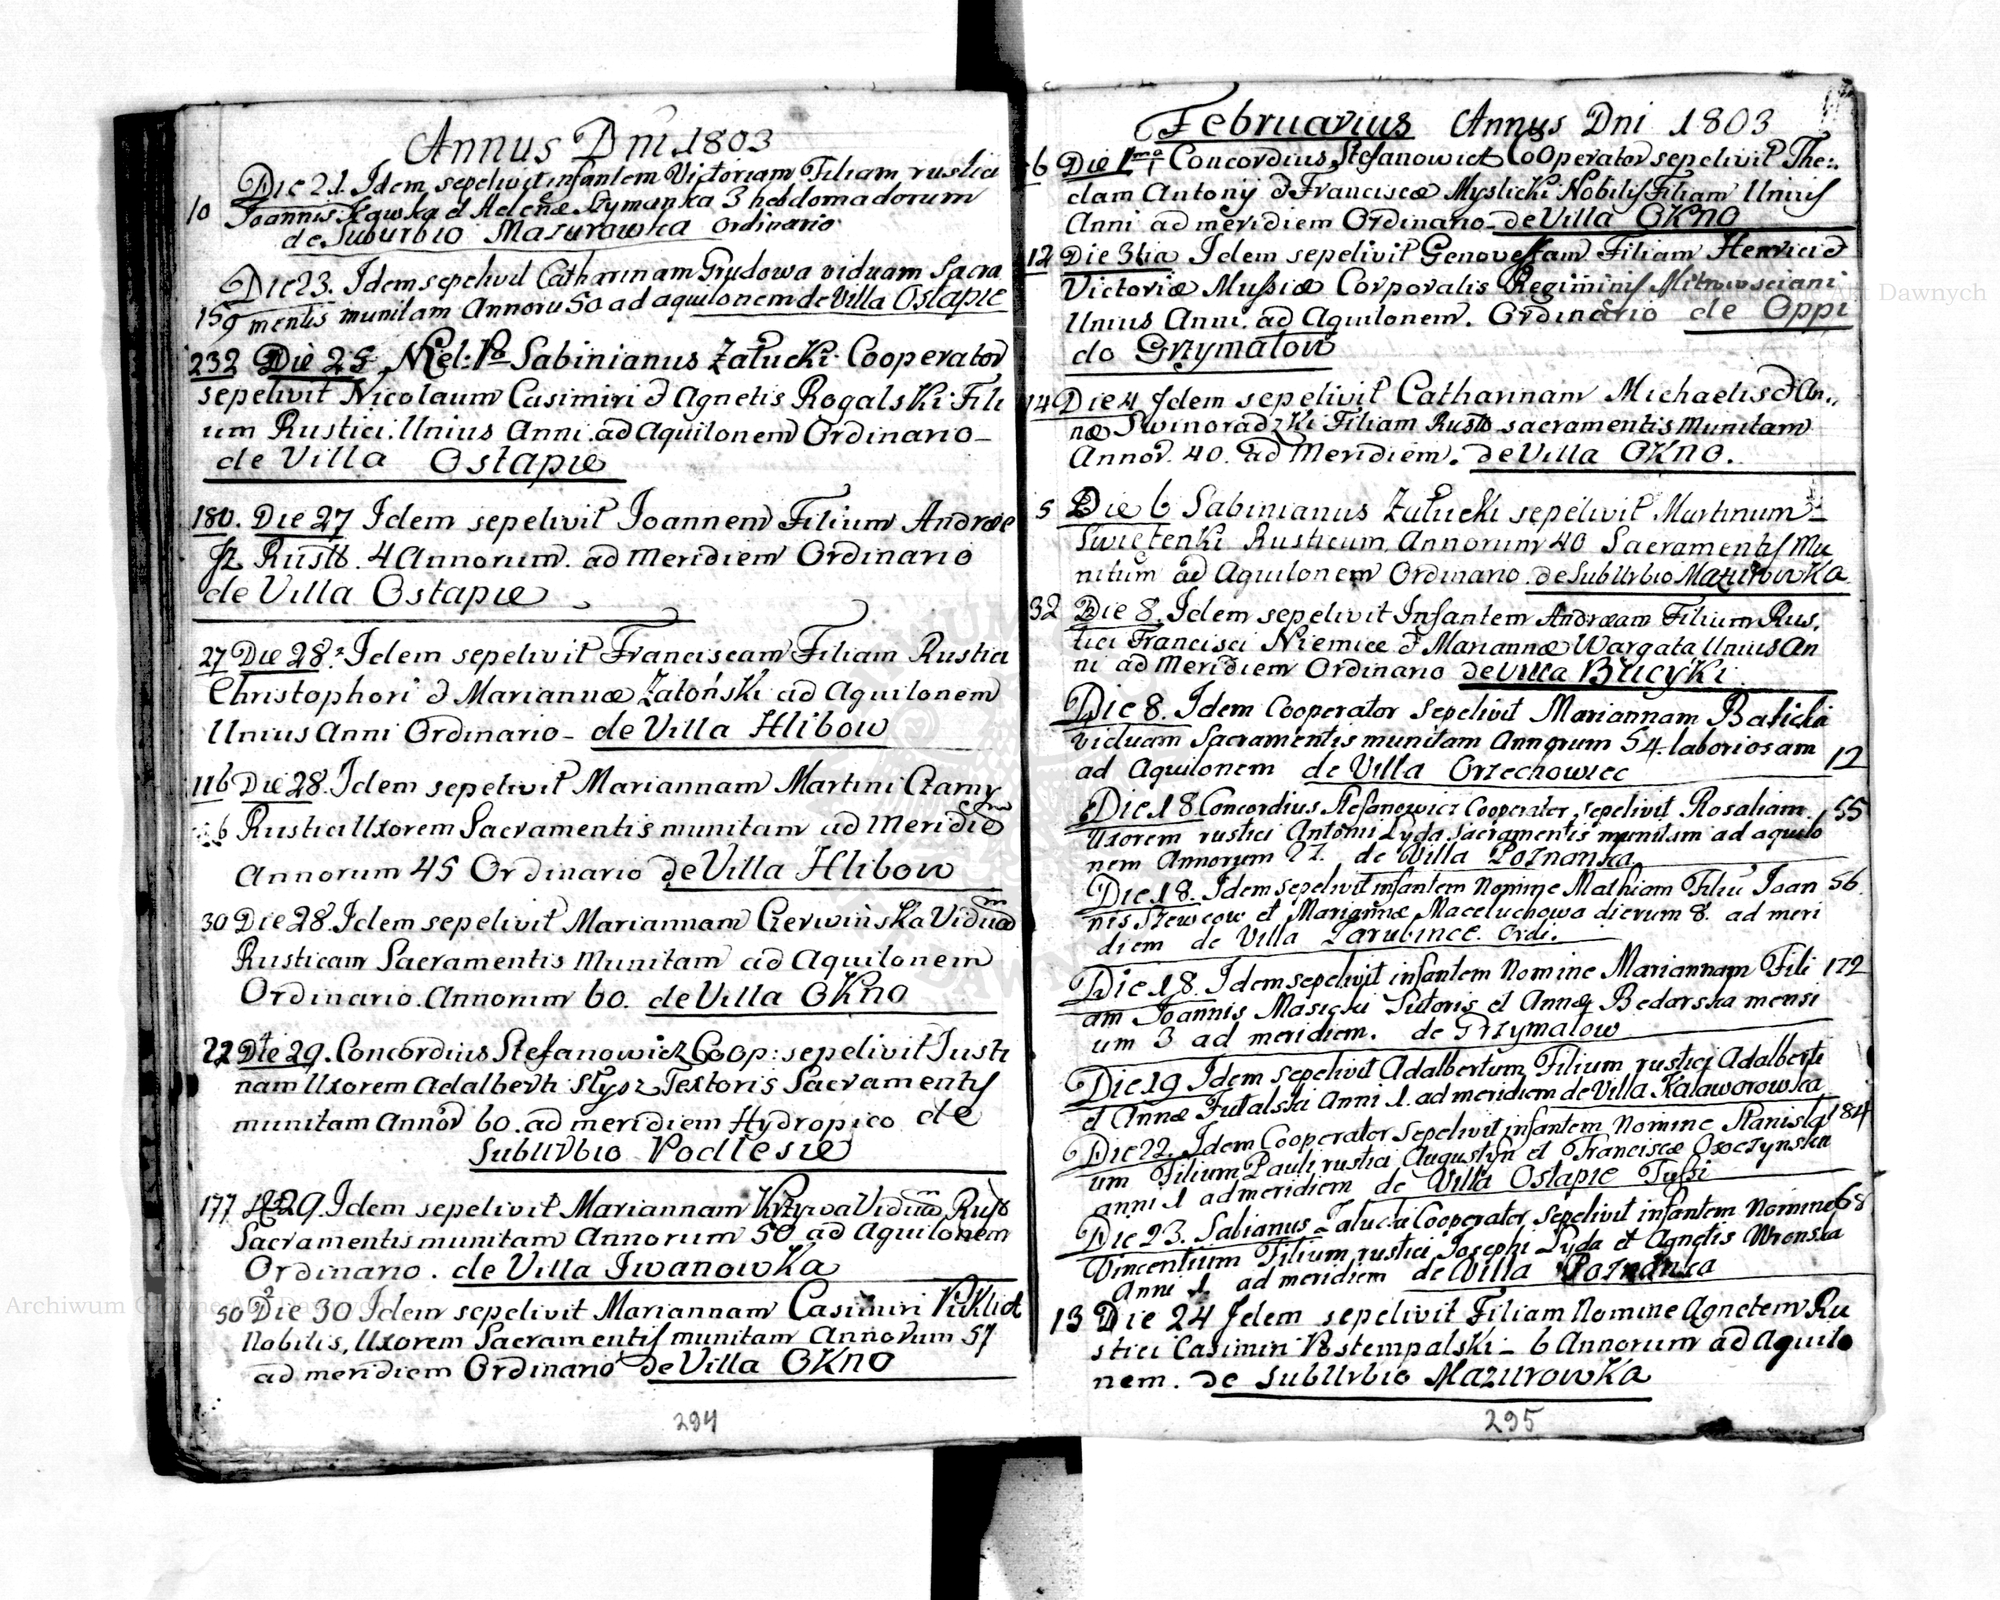 Annus Dni 1803
Die 21. Idem sepelivit infantem Victoriam Filiam rustici
10 Joannis Kawka et Helenæ Szymanka 3 hebdomadorum
de Suburbio Mazurowka ordinario
Die 23. Idem sepelivit Catharinam Grudowa viduam Sacra
159 mentis munitam Annoru 50 ad aquilonem de Villa Ostapie
232 Die 25 Rel: Po Sabinianus Załucki Cooperator
sepelivit Nicolaum Casimiri & Agnetis Rogalski Fili
um Rustici. Unius Anni. ad Aquilonem Ordinario
de Villa Ostapie
180. Die 27 Idem sepelivit Joannem Filium Andreæ
Rusti. 4 Annorum. ad Meridiem Ordinario
de Villa Ostapie
27 Die 28. Idem sepelivit Franciscam Filiam Rustici
Christophori & Mariannæ Zatoński ad Aquilonem
Unius Anni Ordinario de Villa Hlibow
116 Die 28. Idem sepelivit Mariannam Martini Czarny
Rustici Uxorem Sacramentis munitam ad Meridie
Annorum 45 Ordinario de Villa Hlibow
30 Die 28. Idem sepelivit Mariannam Czerwińska Vidua
Rusticam Sacramentis Munitam ad Aquilonem
Ordinario. Annorum 60. de Villa OKno
22 Die 29. Concordius Stefanowicz Coop: sepelivit Justi
nam Uxorem Adalberti Słysz Textoris Sacramentis
munitam Annor 60. ad meridiem Hydropico de
SubUrbio Podlesie
177 Die 29. Idem sepelivit Mariannam Krzywa Vidua Rusti
Sacramentis munitam Annorum 50 ad Aquilonem
Ordinario. de Villa Iwanowka
50 Die 30 Idem sepelivit Mariannam Casimiri
Nobilis, Uxorem Sacramentis munitam Annorum 57
ad meridiem Ordinario de Villa OKno
294
Februarius Annus Dni 1803
6 Die 1ma Concordius Stefanowicz CoOperator sepelivit The:
clam Antonij & Franciscæ Myslicki Nobilis Filiam Unius
Anni ad meridiem Ordinario de Villa OKNO
12 Die 3tia Idem sepelivit Genovefam Filiam Henrici &
Victoriæ Corporalis Regiminis
Unius Anni. ad Aquilonem. Ordinario de Oppi
do Grzymałow
14 Die 4 Idem sepelivit Catharinam Michaelis & An,,
næ Swinoradzki Filiam Rusti sacramentis munitam
Annor. 40. ad Meridiem. de Villa OKNO.
5 Die 6 Sabinianus Załucki sepelivit Martinum
Swiętenki Rusticum Annorum 40 Sacramentis Mu
nitum ad Aquilonem Ordinario de SubUrbio MazurowKa
32 Die 8. Idem sepelivit Infantem Andream Filium Rus,
tici Francisci Niemiec & Mariannæ Wargata Unius An
ni ad Meridiem Ordinario de Villa Bucyki
Die 8. Idem Cooperator Sepelivit Mariannam
viduam Sacramentis munitam Annorum 54. laboriosam
ad Aquilonem de Villa Orzechowiec 12
Die 18. Concordius Stefanowicz Cooperator, sepelivit Rosaliam 55
Uxorem rustici Antoni Łyda Sacramentis munitam ad aquilo
nem Annorum 27. de Villa Poznanka
Die 18. Idem sepelivit infantem Nomine Mathiam Filiu Joan 56
nis Szewcow et Mariannæ Maceluchowa dierum 8. ad meri
diem de Villa Zarubince. Ordi.
Die 18. Idem sepelivit infantem Nomine Mariannam Fili 172
am Joannis Masicki Sutoris et Annæ Bedarska mensi
um 3 ad meridiem. de Grzymalow
Die 19 Idem sepelivit Adalbertum Filium rustici Adalberti
et Annæ Futalski Anni 1. ad meridiem de Villa Kalaworowka
Die 22. Idem Cooperator Sepelivit infantem Nomine Stanisla 184
um Filium Pauli rustici Augustyn et Franciscæ Osoczynska
anni 1 ad meridiem de Villa Ostapie Tussi
Die 23. Sabianus Załucki Cooperator Sepelivit infantem Nomine 68
Vincentium Filium rustici Josephi Łyda et Agnetis Wronska
Anni 1. ad meridiem de Villa Poznanka
13 Die 24 Idem sepelivit Filiam Nomine Agnetem Ru
stici Casimiri Postempalski 6 Annorum ad Aquilo
nem. de SubUrbio MazurowKa
295
Archiwum Główne Akt Dawnych